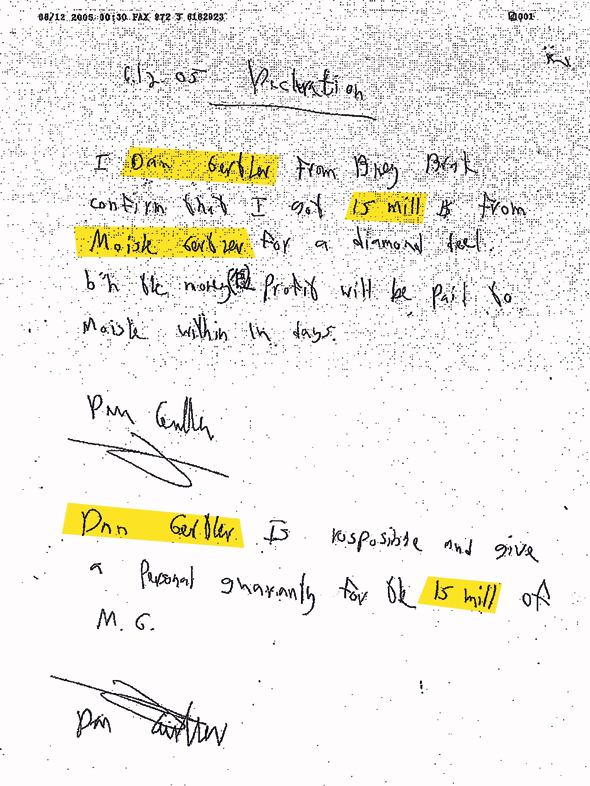 08/12 2005 00:30 FAX 972 3 6162923 001
6.12.05 Decleration
I Dan Gertler from Bney Brak
confirm that I got 15 mill $ from
Moishe Gertner for a diamond deel.
b"h the money profit will be pait to
Moishe within in days.
Dan Gertler
Dan Gertler Is resposible and give
a Personal guaranty for the 15 mill of
M. G.
Dan Gertler